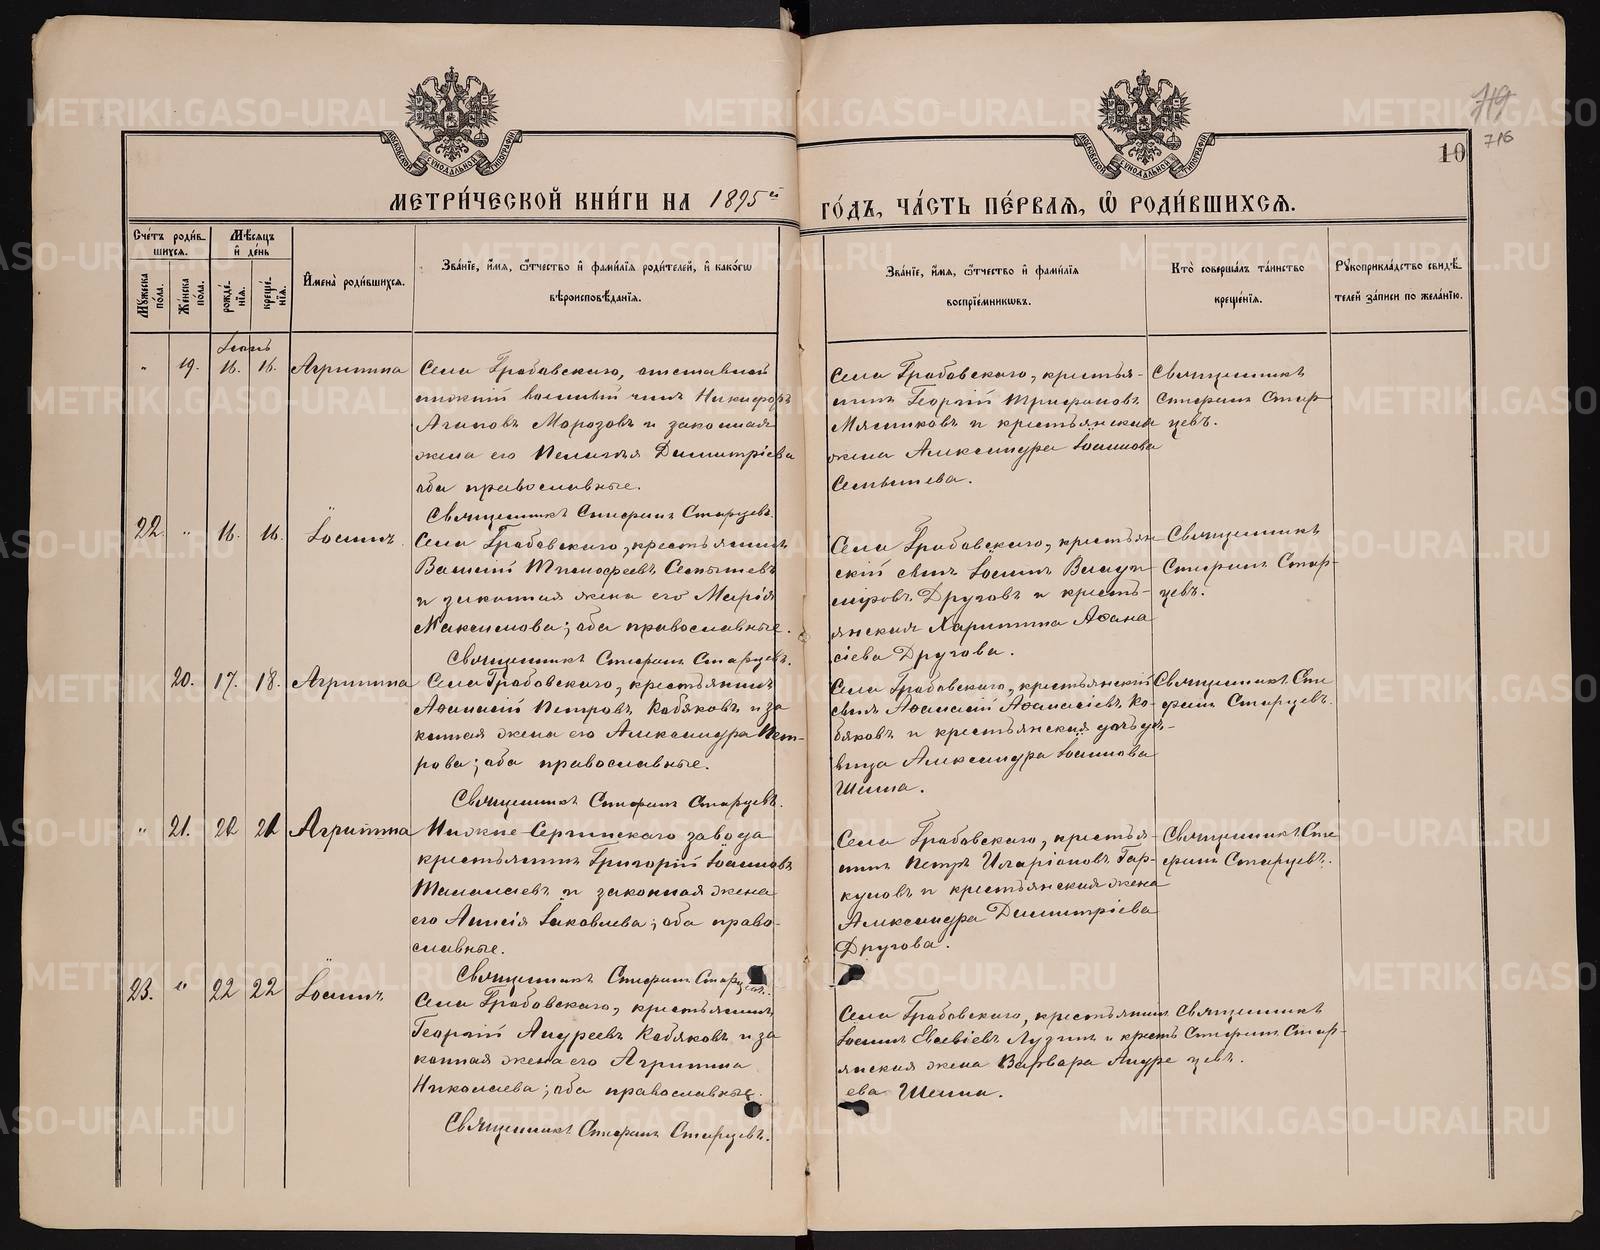 719
716
10
МЕТРИ́ЧЕСКОЙ КНИ́ГИ НА 1895й
ГО́ДЪ, ЧА́СТЬ ПЕ́РВАЯ, Ѡ РОДИ́ВШИХСЯ.
Сче́тъ роди́в-
шихся.
Мѣ́сяцъ
и҆ де́нь
Мꙋ́жеска по́ла.
Же́нска по́ла.
рожде́-
нїя.
креще́-
нїя.
И҆мена̀ роди́вшихся.
Зва́нїе, и҆́мя, ѻ҆́тчество и҆ фами́лїя роди́телей, и҆ како́гѡ
вѣроисповѣ́данїя.
Зва́нїе, и҆́мя, ѻ҆́тчество и҆ фами́лїя
воспрїе́мникѡвъ.
Кто̀ соверша́лъ та́инство
креще́нїя.
Рꙋкоприкла́дство свидѣ́-
телей за́писи по жела́нїю.
19. 16. 16. Агрипина
Села Грабовскаго, отставной
нижній военный чинъ Никифоръ
Агаповъ Морозовъ и законная
жена его Пелагія Димитріева
оба православные.
Священникъ Стефанъ Старцевъ.
Села Грабовскаго, крестья-
нинъ Георгій Трифоновъ
Мясниковъ и крестьянская
жена Александра Іоаннова
Сенышева.
Священникъ
Стефанъ Стар-
цевъ.
22. " 16. 16. Іоаннъ
Села Грабовскаго, крестьянинъ
Василій Тимофеевъ Сенышевъ
и законная жена его Марія
Максимова; оба православные.
Священникъ Стефанъ Старцевъ.
Села Грабовскаго, крестьян-
скій сынъ Іоаннъ
Друговъ и кресть-
янская Харитина Аѳана
сіева Другова.
Священникъ
Стефанъ Стар-
цевъ.
20. 17. 18. Агрипина
Села Грабовскаго, крестьянинъ
Аѳанасій Петровъ Кобяковъ и за
конная жена его Александра Пет-
рова; оба православные.
Священникъ Стефанъ Старцевъ.
Села Грабовскаго, крестьянскій
сынъ Аѳанасій Аѳанасіевъ Ко-
бяковъ и крестьянская дочь дѣ-
вица Александра Іоаннова
Шеина.
Священникъ Сте
фанъ Старцевъ.
" 21. 21 Агрипина
Нижне-Сергинскаго завода
крестьянинъ Григорій Іоанновъ
Талалаевъ и законная жена
его Анисія Іаковлева; оба право-
славные.
Священникъ Стефанъ Старцевъ.
Села Грабовскаго, крестья-
нинъ Петръ Иларіоновъ Гар-
куновъ и крестьянская жена
Александра Димитріева
Другова.
Священникъ Сте
фанъ Старцевъ.
23. " 22 22 Іоаннъ
Села Грабовскаго, крестьянинъ
Георгій Андреевъ Кобяковъ и за
конная жена его Агрипина
Николаева; оба православные.
Священникъ Стефанъ Старцевъ.
Села Грабовскаго, крестьянинъ
Іоаннъ Евсевіевъ Лузинъ и кресть
янская жена Варвара Андре
ева Шеина.
Священникъ
Стефанъ Стар-
цевъ.
METRIKI.GASO-URAL.RU